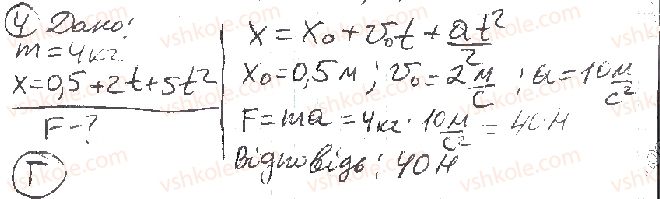 ④ Дано:
m = 4 кг
x = 0,5 + 2t + 5t²
F - ?
Г
x = x₀ + v₀t + at²/2
x₀ = 0,5 м; v₀ = 2 м/с; a = 10 м/с²
F = ma = 4 кг · 10 м/с² = 40 Н
Відповідь: 40 Н